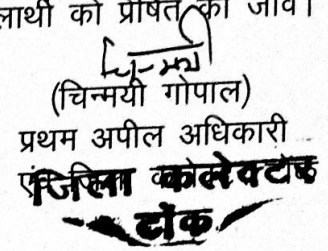 लार्थी को प्रेषित की जावे।
(चिन्मयी गोपाल)
प्रथम अपील अधिकारी
एवं जिला कलेक्टर
टोंक